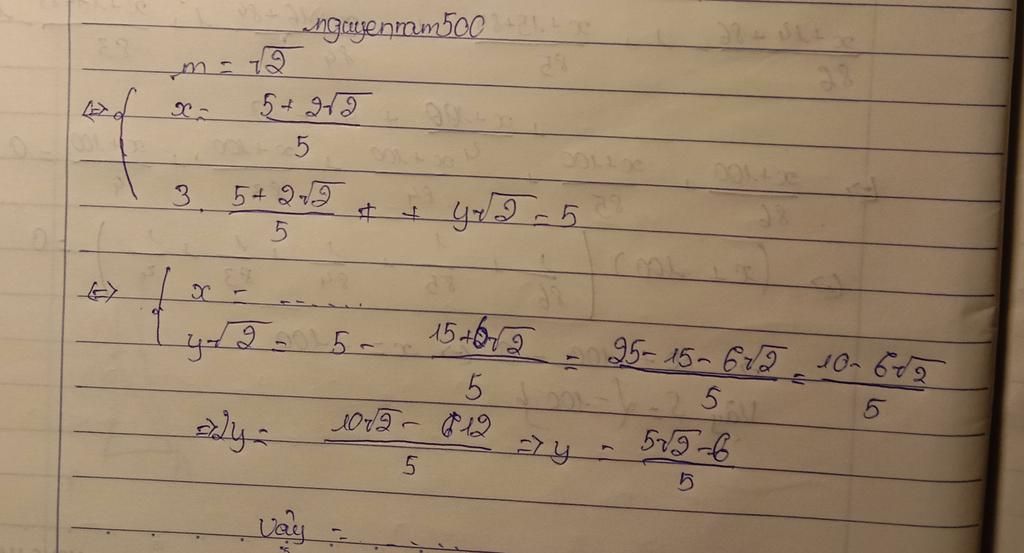 nguyentam500
m = √2
⇔ { x = (5 + 2√2)/5
3. (5 + 2√2)/5 + + y√2 = 5
⇔ { x = .......
y√2 = 5 - (15+6√2)/5 = (25 - 15 - 6√2)/5 = (10 - 6√2)/5
⇒ 2y = (10√2 - 12)/5 ⇒ y = (5√2 - 6)/5
Vậy = .......